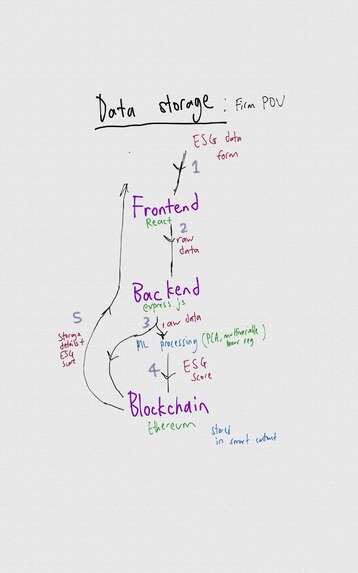 Data storage : Firm POV
ESG data
form
1
Frontend
React
2
raw
data
Backend
express.js
3 raw data
ML processing (PCA, multivariable
linear reg)
4 ESG
score
5
storage
details +
ESG
score
Blockchain
Ethereum
stored
in smart contract